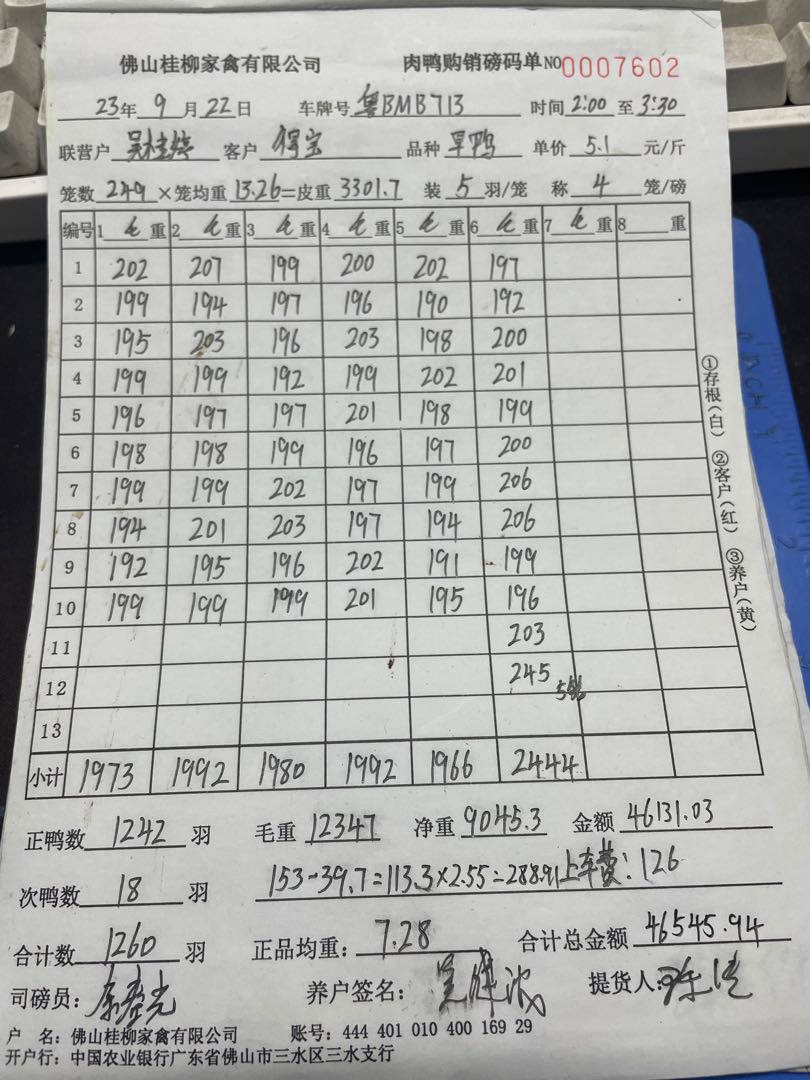 佛山桂柳家禽有限公司 肉鸭购销磅码单 NO 0007602
23年 9 月 22 日 车牌号 粤BMB713 时间 2:00 至 3:30
联营户 客户 得宝 品种 旱鸭 单价 5.1 元/斤
笼数 249 ×笼均重 13.26 =皮重 3301.7 装 5 羽/笼 称 4 笼/磅
编号 1 毛 重 2 毛 重 3 毛 重 4 毛 重 5 毛 重 6 毛 重 7 毛 重 8 重
1 202 207 199 200 202 197
2 199 194 197 196 190 192
3 195 203 196 203 198 200
4 199 199 192 199 202 201
5 196 197 197 201 198 199
6 198 198 199 196 197 200
7 199 199 202 197 199 206
8 194 201 203 197 194 206
9 192 195 196 202 191 199
10 199 199 199 201 195 196
11 203
12 245 5笼
13
小计 1973 1992 1980 1992 1966 2444
①存根(白) ②客户(红) ③养户(黄)
正鸭数 1242 羽 毛重 12347 净重 9045.3 金额 46131.03
次鸭数 18 羽 153-39.7=113.3×2.55=288.91 上车费:126
合计数 1260 羽 正品均重: 7.28 合计总金额 46545.94
司磅员: 养户签名: 提货人:
户 名: 佛山桂柳家禽有限公司 账号: 444 401 010 400 169 29
开户行: 中国农业银行广东省佛山市三水区三水支行